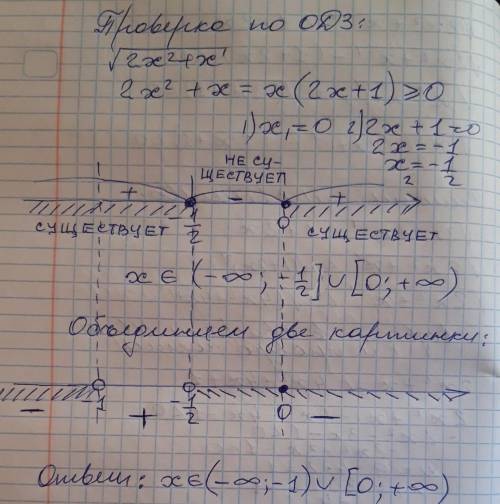 Проверка по ОДЗ:
√2x²+x
2x² + x = x(2x+1) ≥ 0
1) x₁ = 0 2) 2x + 1 = 0
2x = -1
x₂ = -1/2
НЕ СУ-
ЩЕСТВУЕТ
+ - +
-1/2 0
СУЩЕСТВУЕТ СУЩЕСТВУЕТ
x ∈ (-∞; -1/2] ∪ [0; +∞)
Объединяем две картинки:
- -1 + -1/2 0 -
Ответ: x ∈ (-∞; -1) ∪ [0; +∞)